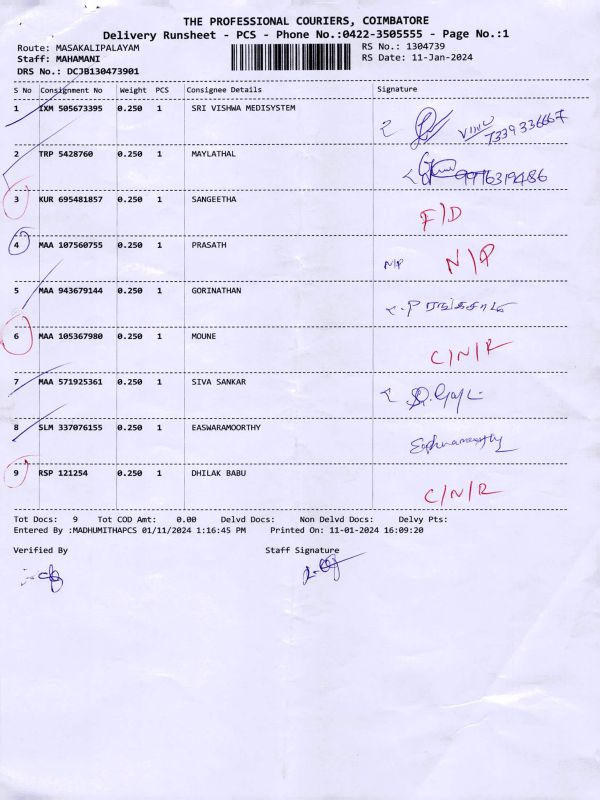 THE PROFESSIONAL COURIERS, COIMBATORE
Delivery Runsheet - PCS - Phone No.:0422-3505555 - Page No.:1
Route: MASAKALIPALAYAM RS No.: 1304739
Staff: MAHAMANI RS Date: 11-Jan-2024
DRS No.: DCJB130473901
S No Consignment No Weight PCS Consignee Details Signature
1 IXM 505673395 0.250 1 SRI VISHWA MEDISYSTEM
2 TRP 5428760 0.250 1 MAYLATHAL 9976319486
3 KUR 695481857 0.250 1 SANGEETHA F/D
4 MAA 107560755 0.250 1 PRASATH N/P N/P
5 MAA 943679144 0.250 1 GORINATHAN
6 MAA 105367980 0.250 1 MOUNE C/N/R
7 MAA 571925361 0.250 1 SIVA SANKAR
8 SLM 337076155 0.250 1 EASWARAMOORTHY
9 RSP 121254 0.250 1 DHILAK BABU C/N/R
Tot Docs: 9 Tot COD Amt: 0.00 Delvd Docs: Non Delvd Docs: Delvy Pts:
Entered By :MADHUMITHAPCS 01/11/2024 1:16:45 PM Printed On: 11-01-2024 16:09:20
Verified By Staff Signature